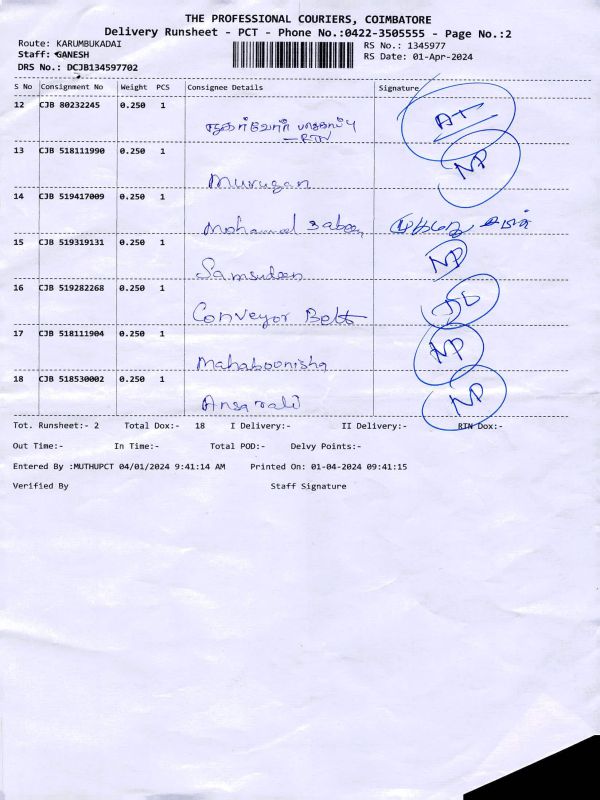 THE PROFESSIONAL COURIERS, COIMBATORE
Delivery Runsheet - PCT - Phone No.:0422-3505555 - Page No.:2
Route: KARUMBUKADAI
RS No.: 1345977
Staff: GANESH
RS Date: 01-Apr-2024
DRS No.: DCJB134597702
S No Consignment No Weight PCS Consignee Details Signature
12 CJB 80232245 0.250 1
நுகர்வோர் பாதுகாப்பு
- RTN
AT
13 CJB 518111990 0.250 1
Murugan NP
14 CJB 519417009 0.250 1
Mohamed
15 CJB 519319131 0.250 1
Samsudeen NP
16 CJB 519282268 0.250 1
Conveyor Belt
17 CJB 518111904 0.250 1
Mahaboonisha NP
18 CJB 518530002 0.250 1
Ansarali NP
Tot. Runsheet:- 2 Total Dox:- 18 I Delivery:- II Delivery:- RTN Dox:-
Out Time:- In Time:- Total POD:- Delvy Points:-
Entered By :MUTHUPCT 04/01/2024 9:41:14 AM Printed On: 01-04-2024 09:41:15
Verified By Staff Signature